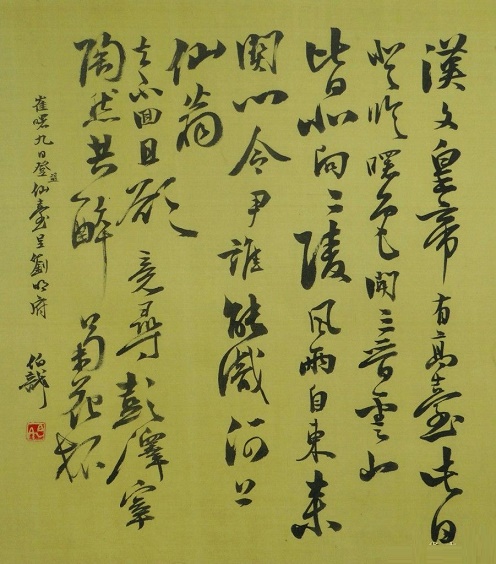 漢文皇帝有高臺此日
登臨曙色開三晉雲山
皆北向二陵風雨自東来
關門令尹誰能識河上
仙翁
去不回且欲竟尋彭澤宰
陶然共醉菊花杯
崔曙九日登望仙臺呈劉明府 伯